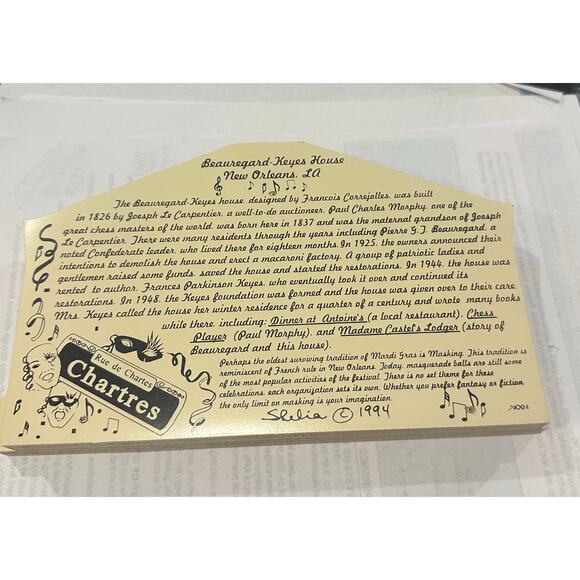 Beauregard-Keyes House
New Orleans, LA
The Beauregard-Keyes house, designed by Francois Correjolles, was built
in 1826 by Joesph Le Carpentier, a well-to-do auctioneer. Paul Charles Morphy, one of the
great chess masters of the world, was born here in 1837 and was the maternal grandson of Joesph
Le Carpentier. There were many residents through the years including Pierre G.T. Beauregard, a
noted Confederate leader, who lived there for eighteen months. In 1925, the owners announced their
intentions to demolish the house and erect a macaroni factory. A group of patriotic ladies and
gentlemen raised some funds, saved the house and started the restorations. In 1944, the house was
rented to author, Frances Parkinson Keyes, who eventually took it over and continued its
restorations. In 1948, the Keyes foundation was formed and the house was given over to their care.
Mrs. Keyes called the house her winter residence for a quarter of a century and wrote many books
while there, including: Dinner at Antoine's (a local restaurant), Chess
Player (Paul Morphy), and Madame Castel's Lodger (story of
Beauregard and this house).
Perhaps the oldest surviving tradition of Mardi Gras is Masking. This tradition is
reminiscent of French rule in New Orleans. Today, masquerade balls are still some
of the most popular activities of the festival. There is no set theme for these
celebrations, each organization sets its own. Whether you prefer fantasy or fiction,
the only limit on masking is your imagination.
Rue de Chartes
Chartres
Shelia © 1994